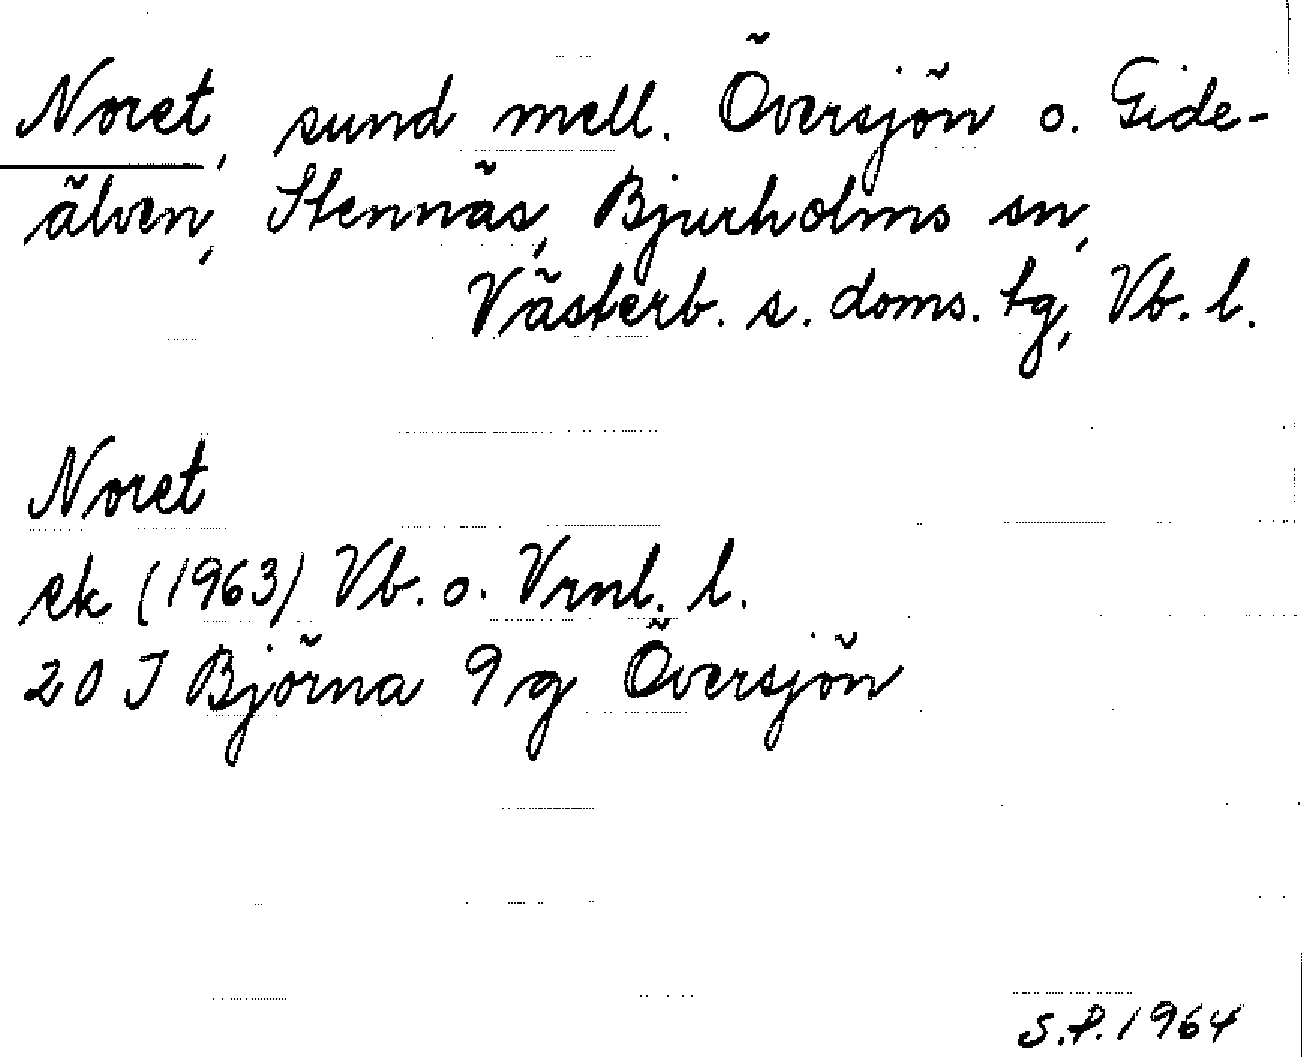 Noret, sund mell. Översjön o. Gide-
älven, Stennäs, Bjurholms sn,
Västerb. s. doms. tg, Vb. l.
Noret
ek (1963) Vb. o. Vrnl. l.
20 J Björna 9 g Översjön
S.P. 1964